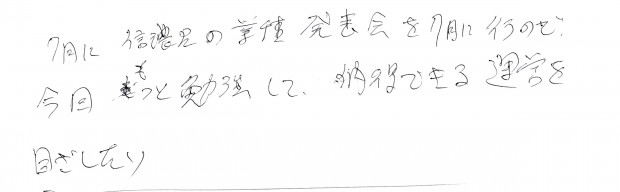 7月に信濃兄の業種発表会を7月に行ので、
今回もっと勉強して、納得できる運営を
目ざしたい